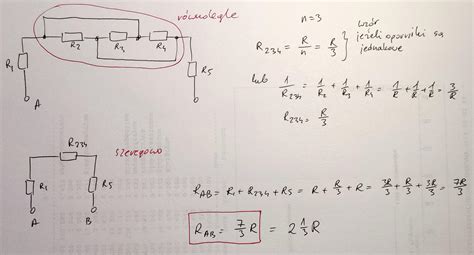 równoległe
R2 R3 R4
R1 R5
A
n=3
R234 = R/n = R/3 } wzór jeżeli oporniki są jednakowe
lub 1/R234 = 1/R2 + 1/R3 + 1/R4 = 1/R + 1/R + 1/R = 3/R
R234 = R/3
R234
szeregowo
R1 R5
A B
RAB = R1 + R234 + R5 = R + R/3 + R = 3R/3 + R/3 + 3R/3 = 7R/3
RAB = 7/3 R = 2 1/3 R